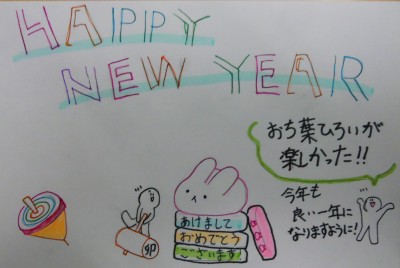 HAPPY
NEW YEAR
おち葉ひろいが
楽しかった!!
今年も
良い一年に
なりますように!
あけまして
おめでとう
ございます!
卯